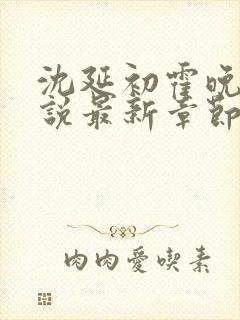 沈延初霍晚
說最新章節
肉肉愛喫素